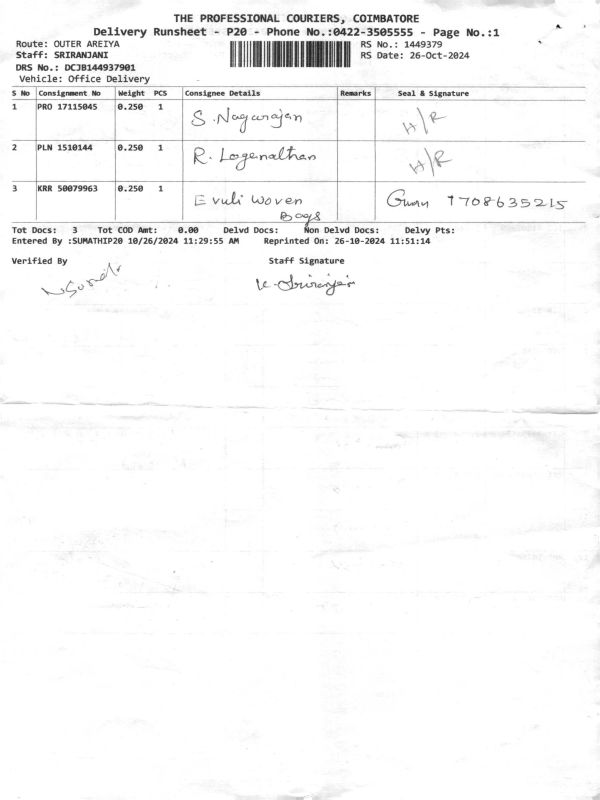 THE PROFESSIONAL COURIERS, COIMBATORE
Delivery Runsheet - P20 - Phone No.:0422-3505555 - Page No.:1
Route: OUTER AREIYA RS No.: 1449379
Staff: SRIRANJANI RS Date: 26-Oct-2024
DRS No.: DCJB144937901
Vehicle: Office Delivery
S No Consignment No Weight PCS Consignee Details Remarks Seal & Signature
1 PRO 17115045 0.250 1 S. Nagarajan H/R
2 PLN 1510144 0.250 1 R. Logenathan H/R
3 KRR 50079963 0.250 1 Evuli Woven 9708635215
Bags
Tot Docs: 3 Tot COD Amt: 0.00 Delvd Docs: Non Delvd Docs: Delvy Pts:
Entered By :SUMATHIP20 10/26/2024 11:29:55 AM Reprinted On: 26-10-2024 11:51:14
Verified By Staff Signature